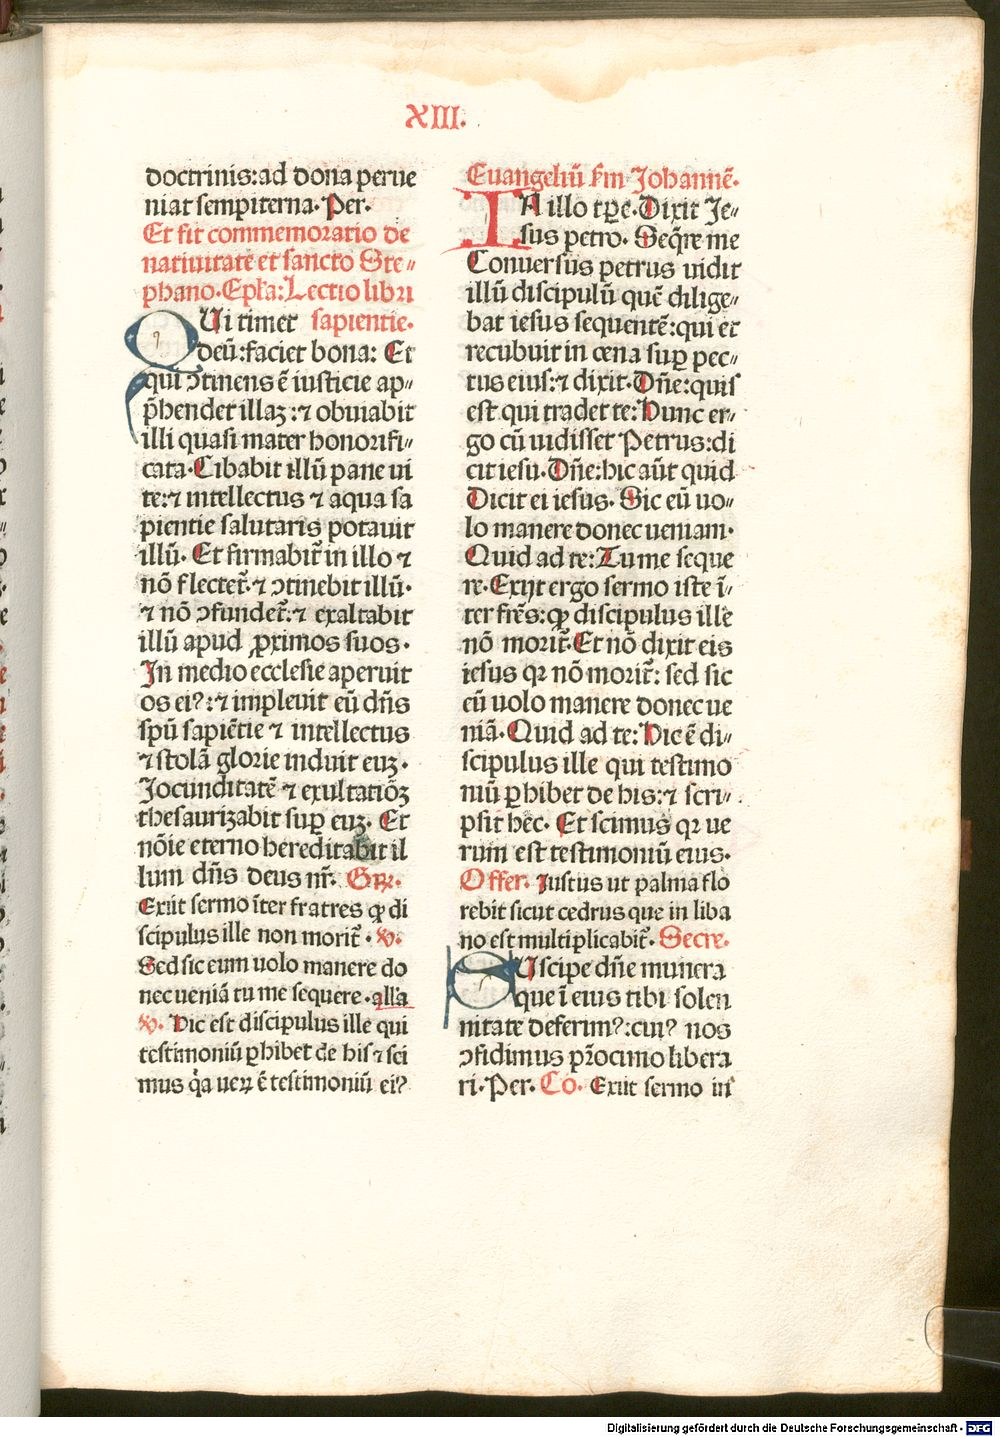 XIII.
doctrinis: ad dona perue
niat sempiterna. Per.
Et fit commemoratio de
natiuitate et sancto Ste⸗
phano. Epl̃a: Lectio libri
QUi timet sapientie.
deū: faciet bona: Et
qui ↄtinens ē iusticie ap⸗
p̄hendet illaꝫ: ⁊ obuiabit
illi quasi mater honorifi⸗
cata. Cibabit illū pane ui
te: ⁊ intellectus ⁊ aqua sa
pientie salutaris potauit
illū. Et firmabit̃ in illo ⁊
nō flectet̃. ⁊ ↄtinebit illū.
⁊ nō ↄfundet̃: ⁊ exaltabit
illū apud ꝓximos suos.
In medio ecclesie aperuit
os eiꝰ: ⁊ impleuit eū dn̄s
spū sapiētie ⁊ intellectus
⁊ stolā glorie induit euꝫ.
Jocunditatē ⁊ exultatiōꝫ
thesaurizabit suꝑ euꝫ. Et
nōie eterno hereditabit il
lum dn̄s deus nr̄. Gꝝ.
Exiit sermo īter fratres ꝙ di
scipulus ille non morit̃. ꝟ.
Sed sic eum uolo manere do
nec ueniā tu me sequere. all̃a
ꝟ. Hic est discipulus ille qui
testimoniū ꝑhibet de his ⁊ sci
mus q̄a ueꝝ ē testimoniū eiꝰ
Euangeliū ẜm Johannē.
IN illo tꝑe. Dixit Je⸗
sus petro. Seq̄re me
Conuersus petrus uidit
illū discipulū quē dilige⸗
bat iesus sequentē: qui et
recubuit in cena suꝑ pec⸗
tus eius: ⁊ dixit. Dn̄e: quis
est qui tradet te: Hunc er⸗
go cū uidisset Petrus: di
cit iesu. Dn̄e: hic aūt quid
Dicit ei iesus. Sic eū uo⸗
lo manere donec ueniam.
Quid ad te: Tu me seque
re. Exijt ergo sermo iste ī⸗
ter fr̄es: ꝙ discipulus ille
nō morit̃. Et nō dixit eis
iesus qꝛ nō morit̃: sed sic
eū uolo manere donec ue
niā. Quid ad te: Hic ē di⸗
scipulus ille qui testimo
niū ꝑhibet de his: ⁊ scri⸗
psit hec. Et scimus qꝛ ue
rum est testimoniū eius.
Offer. Justus ut palma flo
rebit sicut cedrus que in liba
no est multiplicabit̃. Secre.
SUscipe dn̄e munera
que ī eius tibi solen
nitate deferimꝰ: cuiꝰ nos
ↄfidimus pr̄ocinio libera
ri. Per. Co. Exiit sermo in
Digitalisierung gefördert durch die Deutsche Forschungsgemeinschaft - DFG